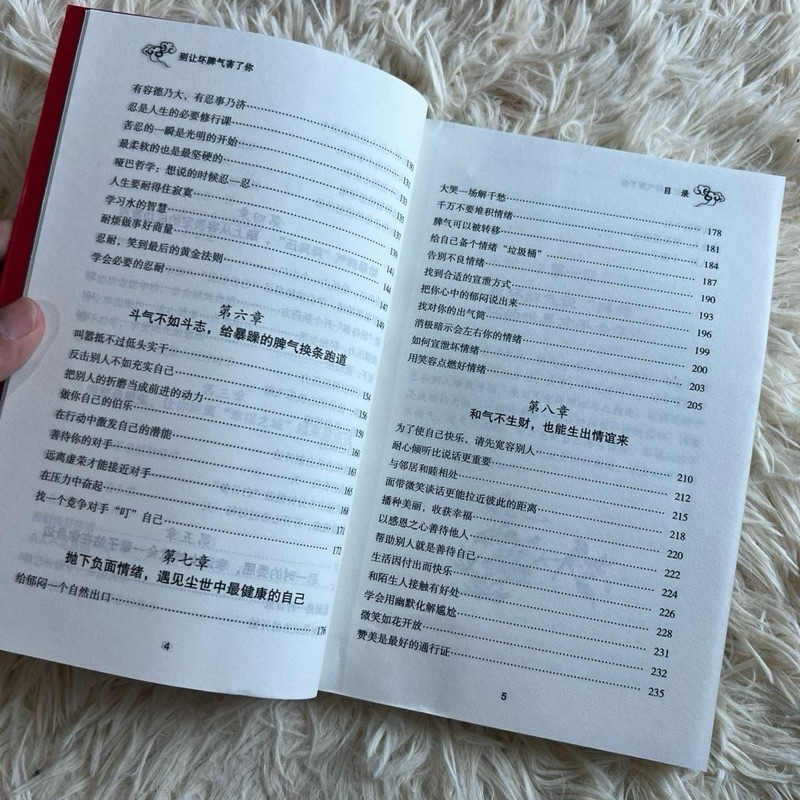 别让坏脾气害了你
有容德乃大、有忍事乃济
忍是人生的必要修行课
苦忍的一瞬是光明的开始
最柔软的也是最坚硬的
哑巴哲学：想说的时候忍一忍
人生要耐得住寂寞
学习水的智慧
耐烦做事好商量
忍耐、笑到最后的黄金法则
学会必要的忍耐
第六章
斗气不如斗志，给暴躁的脾气换条跑道
叫嚣抵不过低头实干 154
反击别人不如充实自己
把别人的折磨当成前进的动力
做你自己的伯乐
在行动中激发自己的潜能
善待你的对手
远离虚荣才能接近对手
在压力中奋起
找一个竞争对手“叮”自己
第七章
抛下负面情绪，遇见尘世中最健康的自己
给郁闷一个自然出口 176
4
目 录
大哭一场解千愁 178
千万不要堆积情绪 181
脾气可以被转移 184
给自己备个情绪“垃圾桶” 187
告别不良情绪 190
找到合适的宣泄方式 193
把你心中的郁闷说出来 196
找对你的出气筒 199
消极暗示会左右你的情绪 200
如何宣泄坏情绪 203
用笑容点燃好情绪 205
第八章
和气不生财，也能生出情谊来
为了使自己快乐，请先宽容别人 210
耐心倾听比说话更重要 212
与邻居和睦相处 215
面带微笑谈话更能拉近彼此的距离 218
播种美丽，收获幸福 220
以感恩之心善待他人 222
帮助别人就是善待自己 224
生活因付出而快乐 226
和陌生人接触有好处 228
学会用幽默化解尴尬 231
微笑如花开放 232
赞美是最好的通行证 235
5